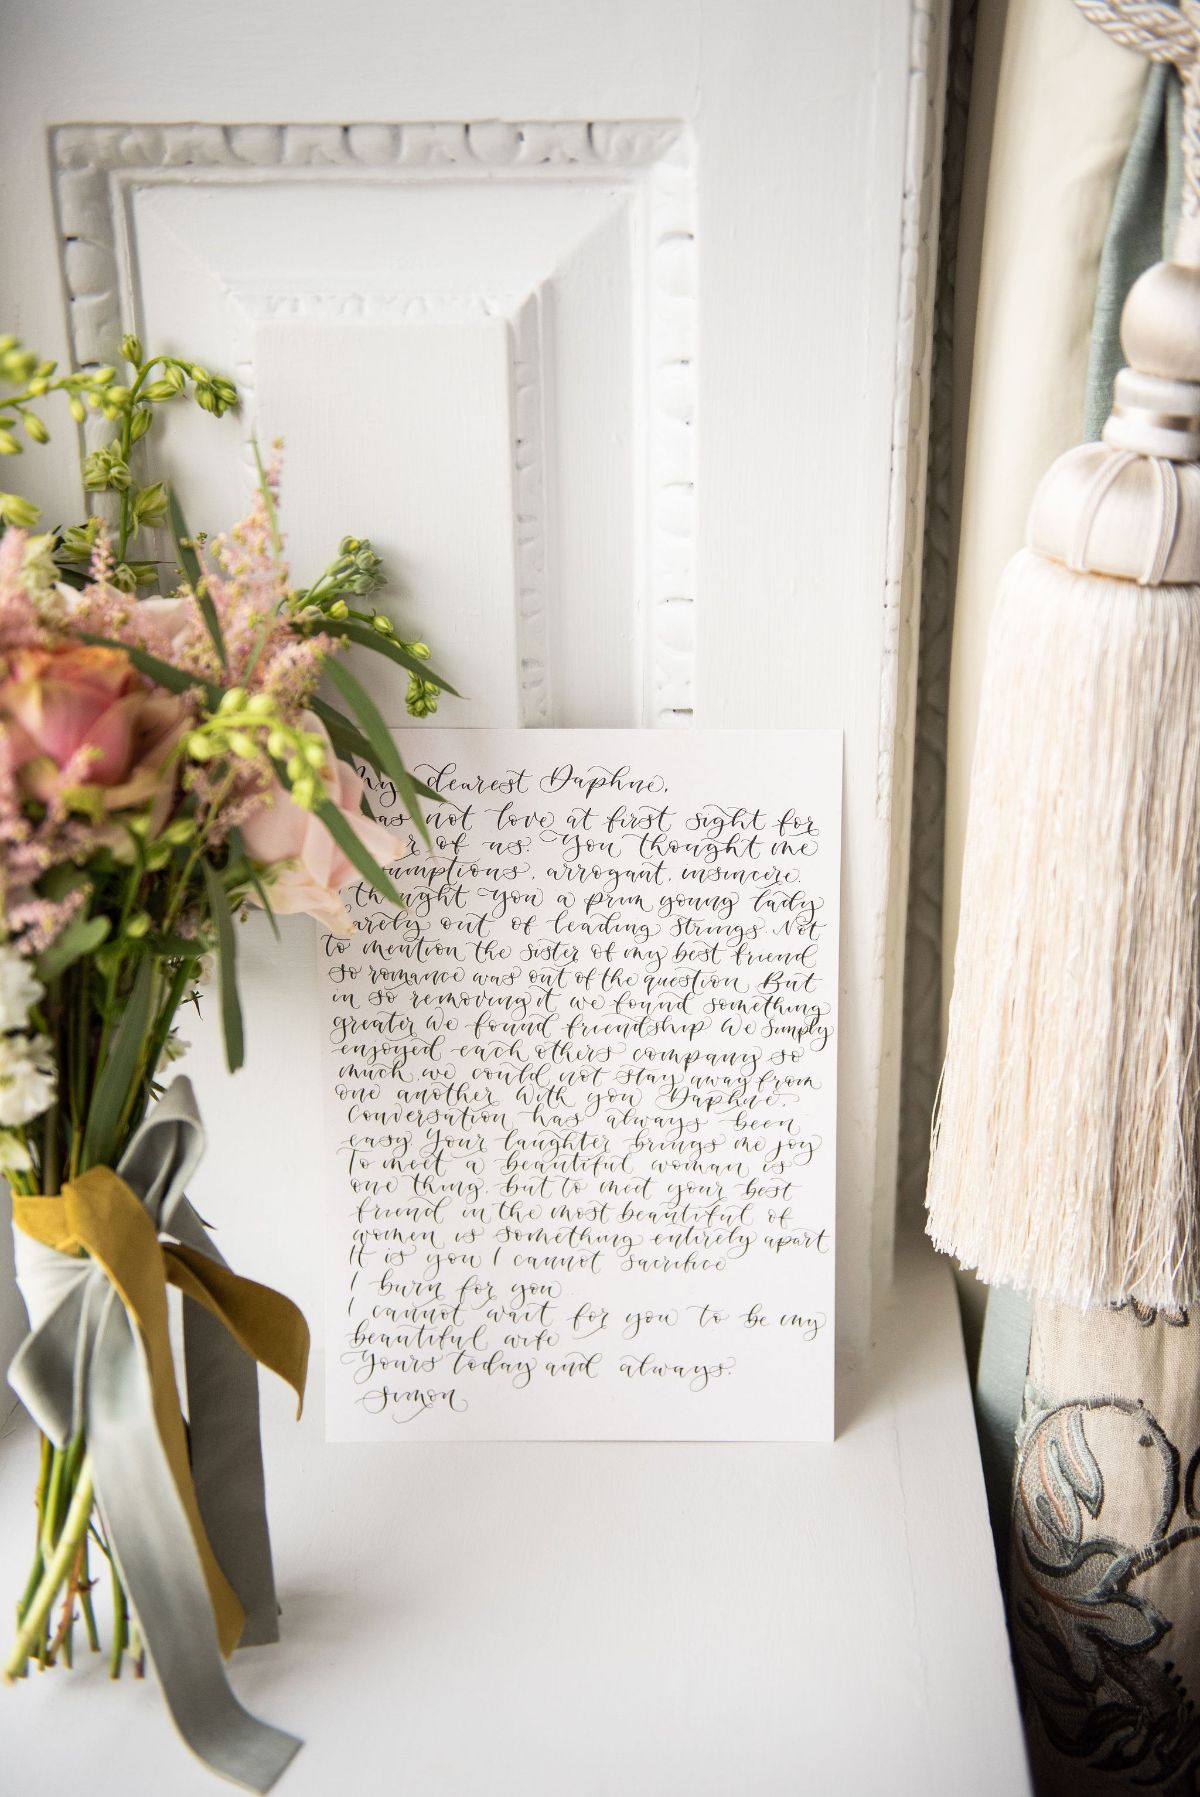 My dearest Daphne,
as not love at first sight for
of us. You thought me
umptions, arrogant, insincere.
thought you a prim young lady
arely out of leading strings. Not
to mention the sister of my best friend
so romance was out of the question But
in so removing it we found something
greater We found friendship We simply
enjoyed each others company so
much, we could not stay away from
one another With you Daphne.
Conversation has always been
easy Your laughter brings me joy
To meet a beautiful woman is
one thing, but to meet your best
friend in the most beautiful of
women is something entirely apart
It is you I cannot sacrifice
I burn for you
I cannot wait for you to be my
beautiful wife
Yours today and always.
Simon